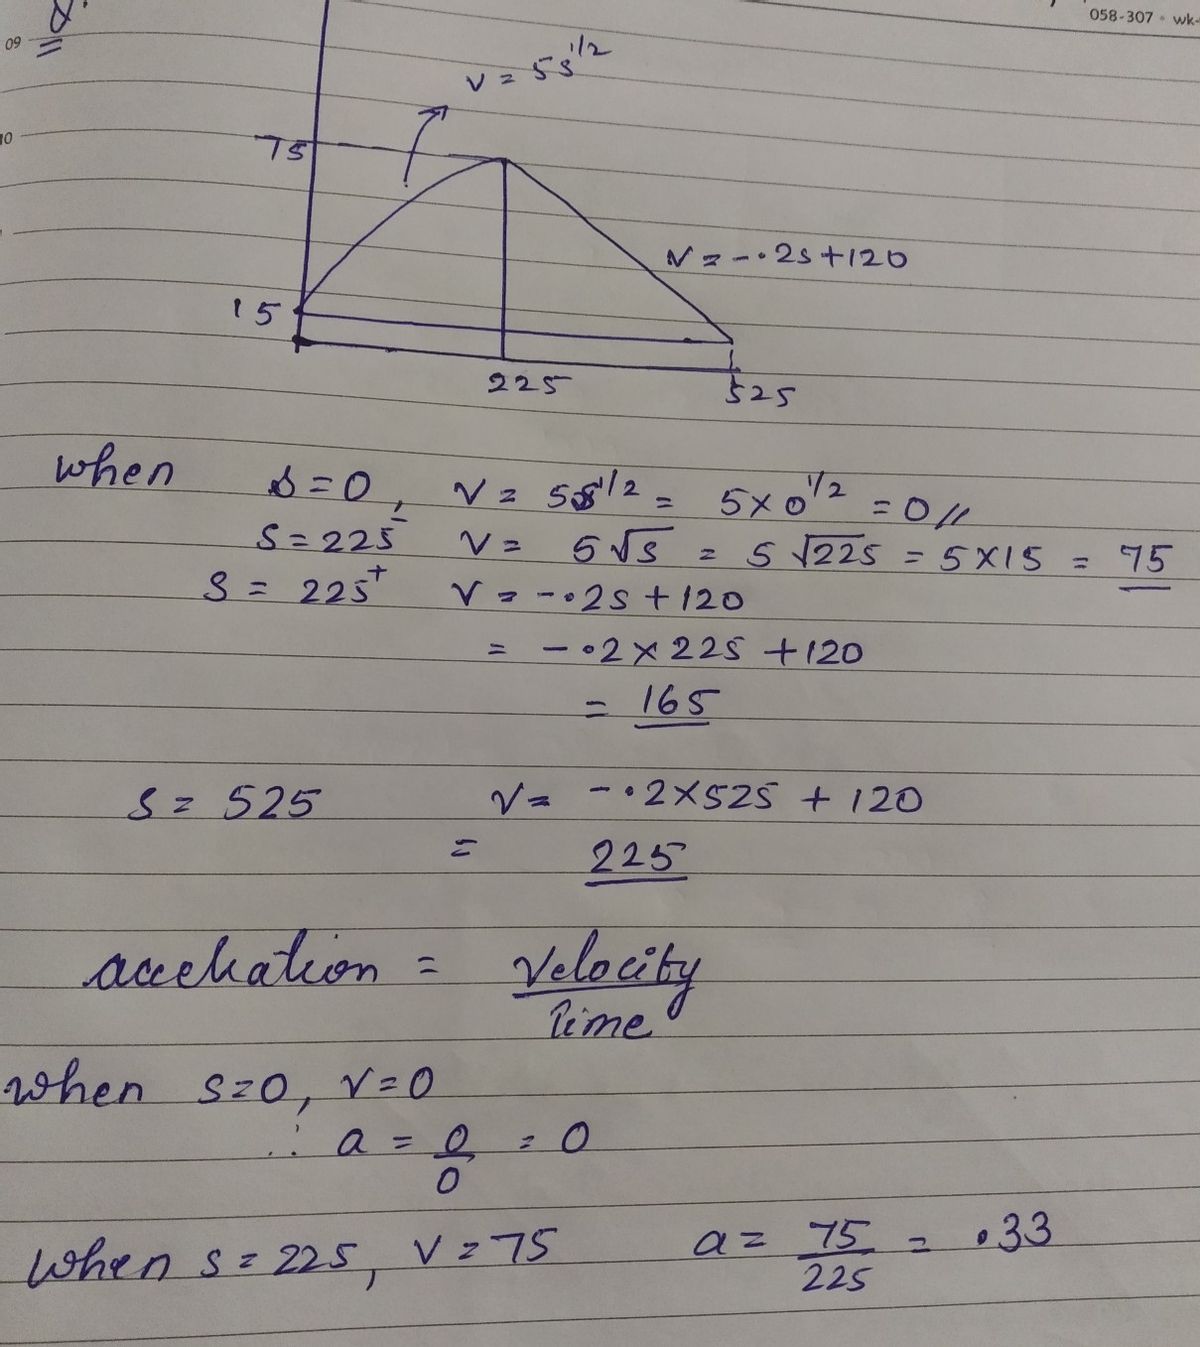 058-307 • wk-
09
Q.
v = 5s^1/2
10
75
v = -.2s+120
15
225
525
when s=0, v = 5s^1/2 = 5×0^1/2 = 0//
s=225^- v = 5√s = 5√225 = 5×15 = 75
s = 225^+ v = -.2s+120
= -.2×225+120
= 165
s = 525 v = -.2×525 + 120
= 225
acceleration = Velocity
Time
when s=0, v=0
∴ a = 0/0 = 0
when s=225, v=75 a = 75/225 = .33